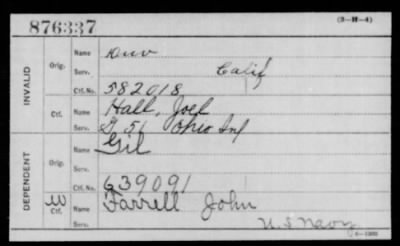 876337 (3-H-4)
INVALID
Orig. Name
Serv. Calif
Ctf. No. 582018
Ctf. Name Hall, Joel
Serv. G 51 Ohio Inf
DEPENDENT
Orig. Name Gil
Serv.
Ctf. No. 639091
W Ctf. Name Farrell John
Serv. U.S. Navy